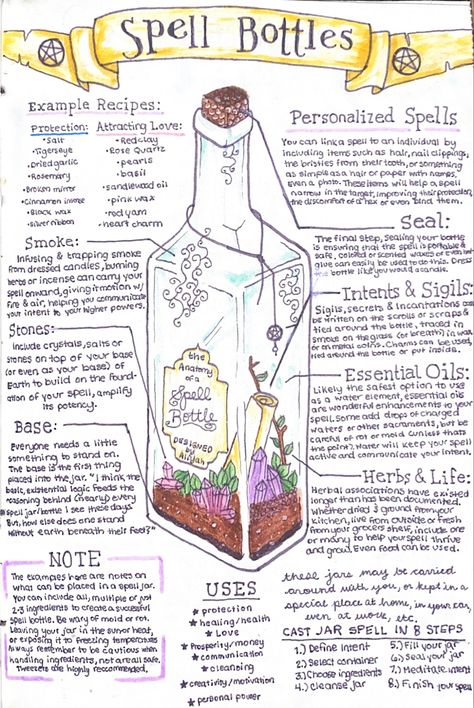 Spell Bottles
Example Recipes:
Protection:
• Salt
• Tigerseye
• Dried garlic
• Rosemary
• Broken mirror
• Black wax
• Silver ribbon
Attracting Love:
• Red clay
• Rose Quartz
• pearls
• basil
• sandlewood oil
• pink wax
• red yarn
• heart charm
Smoke:
Infusing & trapping smoke
from dressed candles, burning
herbs or incense can carry your
spell onward, giving it motion w/
fire & air, helping you communicate
your intent to your higher powers.
Stones:
Include crystals, salts or
stones on top of your base
(or even as your base) of
Earth to build on the found-
ation of your spell, amplify
its potency.
Base:
Everyone needs a little
something to stand on.
The base is the first thing
placed into the jar. "I think the
basic, existential logic feeds the
reasoning behind (nearly) every
spell jar/bottle I see these days
But, how else does one stand
without earth beneath their feet?"
NOTE
The examples here are notes on
what can be placed in a spell jar.
You can include all, multiple or just
2-3 ingredients to create a successful
spell bottle. Be wary of mold or rot.
Leaving your jar in the sun or heat,
or exposing it to freezing temperatures
Always remember to be cautious when
handling ingredients, not are all safe.
Tweezers are highly recommended.
the
Anatomy
of a
Spell
Bottle
DESIGNED
by
USES
* protection
* healing/health
* Love
* Prosperity/money
* communication
* cleansing
* creativity/motivation
* personal power
Personalized Spells
You can link a spell to an individual by
including items such as hair, nail clippings,
the bristles from their tooth, or something
as simple as a hair or paper with names.
Even a photo. These items will help a spell
narrow in the target, improving their protection,
the discomfort of a hex or even bind them.
Seal:
The final step, sealing your bottle
is ensuring that the spell is portable &
safe, colored or scented waxes or even hot
glue can easily be used to do this. Dress
the bottle like you would a candle.
Intents & Sigils:
Sigils, secrets & incantations can
be written on the scrolls or scraps &
tied around the bottle, traced in
smoke on the glass (or breath), in wax,
or on metal coins. Charms can be used,
tied around the bottle or put inside.
Essential Oils:
Likely the safest option to use
as a water element, essential oils
are wonderful enhancements to your
spell. Some add drops of charged
waters or other sacraments, but be
careful of rot or mold (unless thats
the point), water will keep your spell
active and communicate your intent.
Herbs & Life:
Herbal associations have existed
longer than has been documented.
Whether dried & ground from your
kitchen, live from outside or fresh
from your grocers shelf, include one
or many to help your spell thrive
and grow. Even food can be used.
these jars may be carried
around with you, or kept in a
special place at home, in your car,
even at work, etc.
CAST JAR SPELL IN 8 STEPS
1.) Define Intent
2.) Select container
3.) Choose ingredients
4.) Cleanse jar
5.) Fill your jar
6.) Seal your jar
7.) Meditate intent
8.) Finish your spell